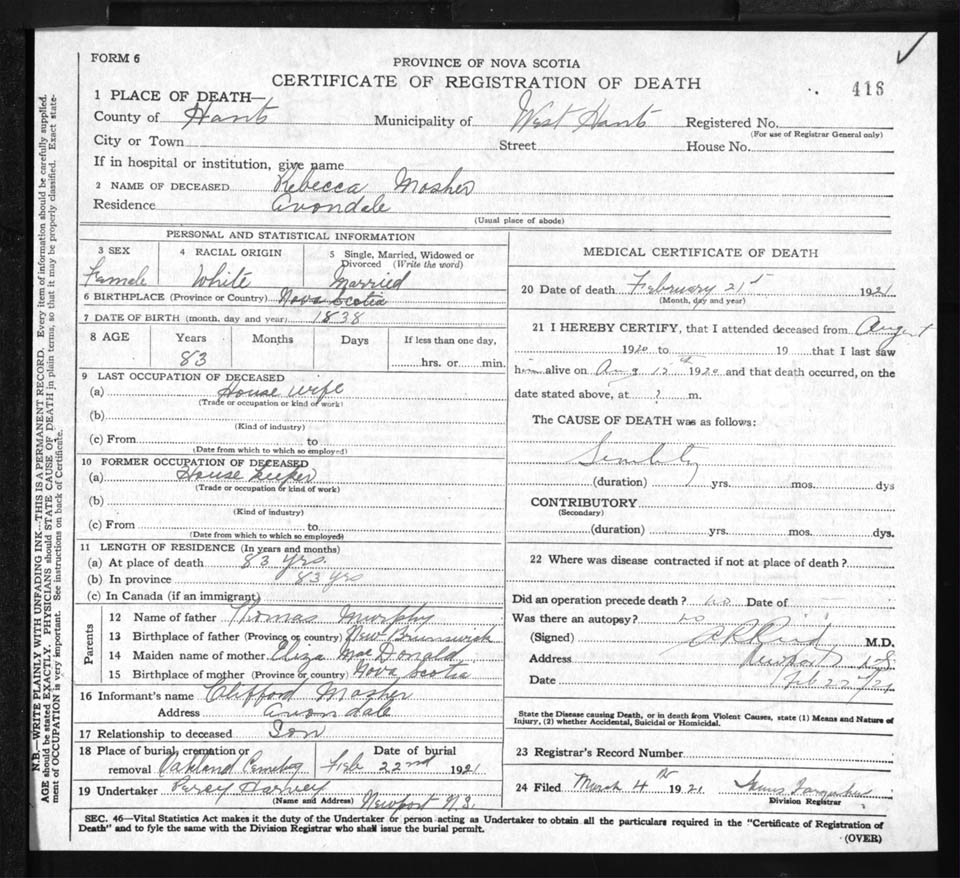 FORM 6
PROVINCE OF NOVA SCOTIA
CERTIFICATE OF REGISTRATION OF DEATH
416
1 PLACE OF DEATH—
County of Hants Municipality of West Hants Registered No.
(For use of Registrar General only)
City or Town Street House No.
If in hospital or institution, give name
2 NAME OF DECEASED Rebecca Mosher
Residence Avondale
(Usual place of abode)
PERSONAL AND STATISTICAL INFORMATION
3 SEX 4 RACIAL ORIGIN 5 Single, Married, Widowed or Divorced (Write the word)
Female White Married
6 BIRTHPLACE (Province or Country) Nova Scotia
7 DATE OF BIRTH (month, day and year) 1838
8 AGE Years Months Days If less than one day,
83 hrs. or min.
9 LAST OCCUPATION OF DECEASED
(a) House wife
(Trade or occupation or kind of work)
(b)
(Kind of industry)
(c) From to
(Date from which to which so employed)
10 FORMER OCCUPATION OF DECEASED
(a) House keeper
(Trade or occupation or kind of work)
(b)
(Kind of industry)
(c) From to
(Date from which to which so employed)
11 LENGTH OF RESIDENCE (In years and months)
(a) At place of death 83 yrs.
(b) In province 83 yrs
(c) In Canada (if an immigrant)
Parents
12 Name of father Thomas Murphy
13 Birthplace of father (Province or country) New Brunswick
14 Maiden name of mother Eliza MacDonald
15 Birthplace of mother (Province or country) Nova Scotia
16 Informant's name Clifford Mosher
Address Avondale
17 Relationship to deceased Son
18 Place of burial, cremation or removal Oakland Cemetery Date of burial Feb 22nd 1921
19 Undertaker Percy Harvey
(Name and Address) Newport N.S.
MEDICAL CERTIFICATE OF DEATH
20 Date of death February 21st 1921
(Month, day and year)
21 I HEREBY CERTIFY, that I attended deceased from August
1920 to 19 that I last saw
him alive on Aug 12th 1920 and that death occurred, on the
date stated above, at ? m.
The CAUSE OF DEATH was as follows:
Senility
(duration) yrs. mos. dys
CONTRIBUTORY
(Secondary)
(duration) yrs. mos. dys.
22 Where was disease contracted if not at place of death?
Did an operation precede death? no Date of
Was there an autopsy? no
(Signed) Reid M.D.
Address Newport N.S.
Date Feb 22nd/21
State the Disease causing Death, or in death from Violent Causes, state (1) Means and Nature of
Injury, (2) whether Accidental, Suicidal or Homicidal.
23 Registrar's Record Number
24 Filed March 4th 1921
Division Registrar
SEC. 46—Vital Statistics Act makes it the duty of the Undertaker or person acting as Undertaker to obtain all the particulars required in the "Certificate of Registration of
Death" and to fyle the same with the Division Registrar who shall issue the burial permit.
(OVER)
N.B.—WRITE PLAINLY WITH UNFADING INK—THIS IS A PERMANENT RECORD. Every item of information should be carefully supplied.
AGE should be stated EXACTLY. PHYSICIANS should STATE CAUSE OF DEATH in plain terms, so that it may be properly classified. Exact state-
ment of OCCUPATION is very important. See instructions on back of Certificate.